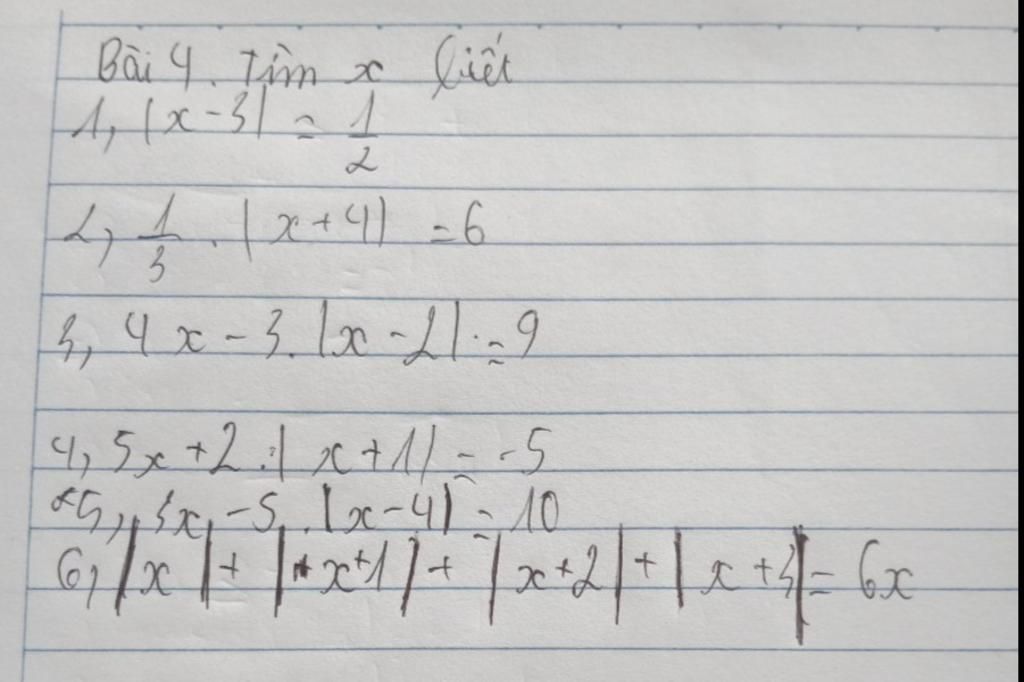 Bài 4. Tìm x biết
1, |x-3| = 1/2
2, 1/3 . |x+4| = 6
3, 4x - 3. |x-2| = 9
4, 5x + 2 . | x+1| = -5
*5, 3x - 5 . |x-4| = 10
6, |x| + |x+1| + |x+2| + |x+3| = 6x